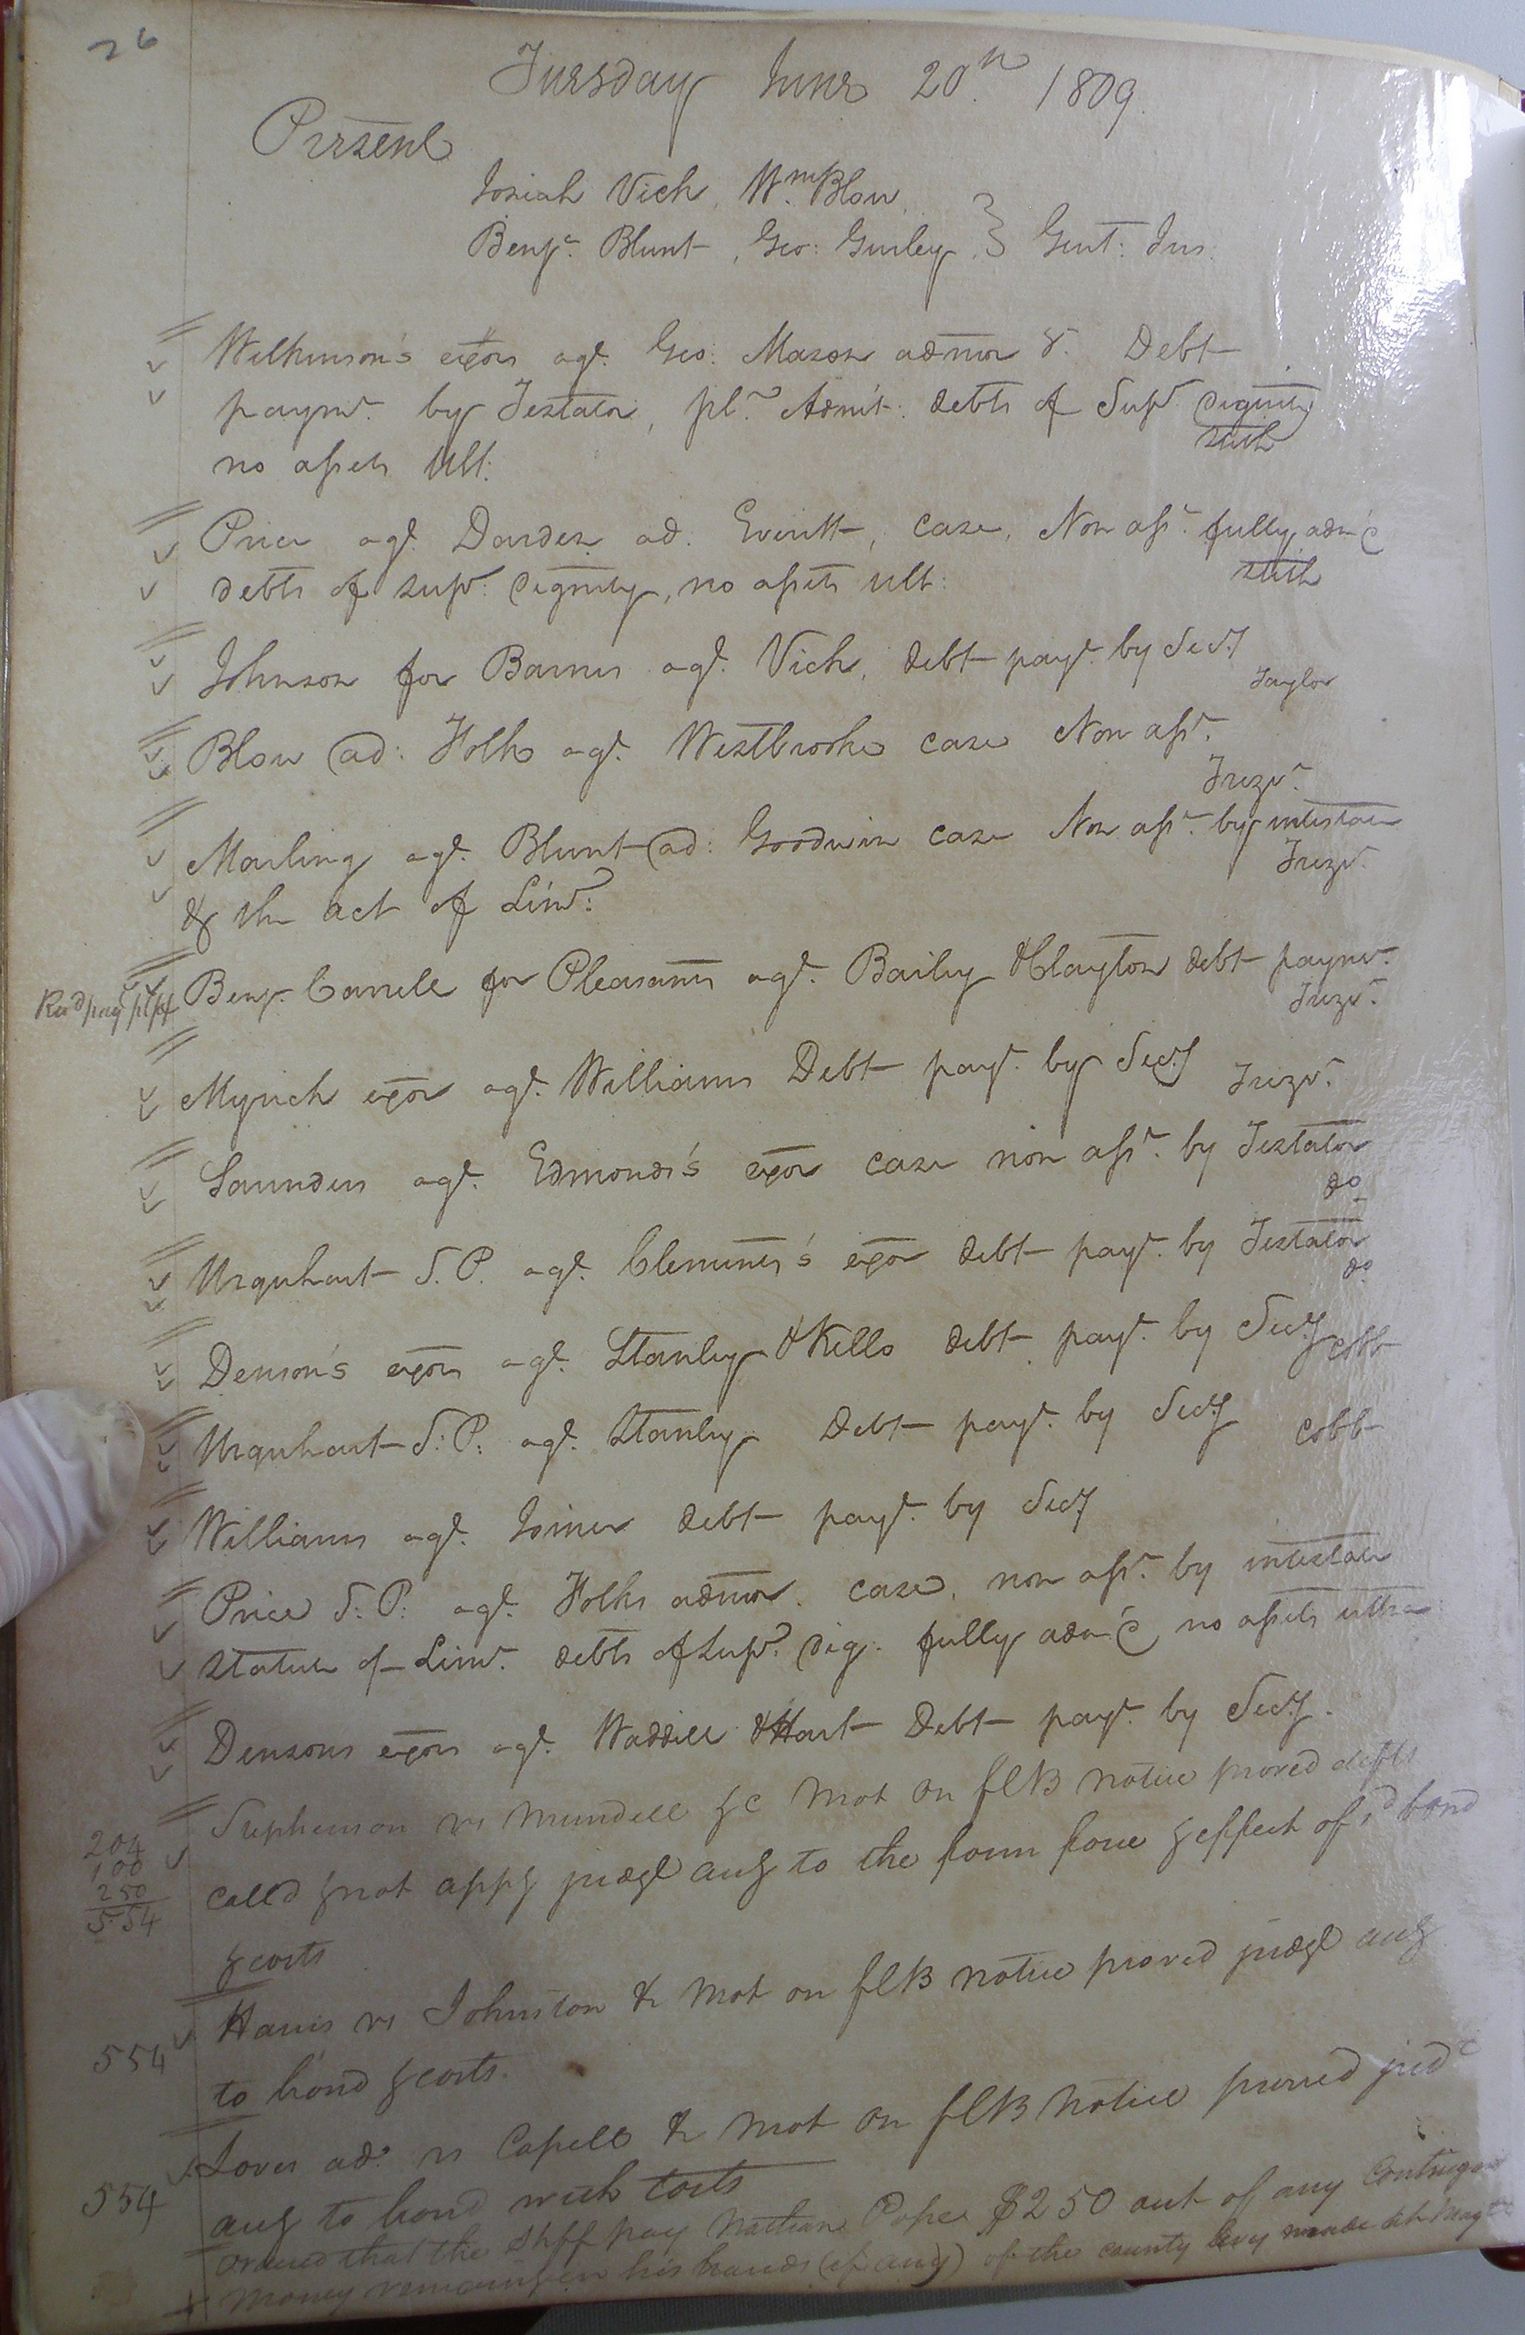 26
Tuesday June 20th 1809
Present
Josiah Vick, Wm Blow,
Benja. Blunt, Geo: Gurley, } Gent: Jus.
Wilkinson's exors agt. Geo: Mason admor &. Debt
paymt. by Testator, plo Admit: debts of Supr. dignity
no assets Ult:
Price agt. Darden ad. Everitt, case, Non asst. fully adm'd
debts of supr: dignity, no assets ult:
Johnson for Barnes agt. Vick, debt payt. by Secy
Taylor
Blow ad: Folk agt. Westbrooke case Non asst.
Trezvt.
Marling agt. Blunt ad: Goodwin case Non asst. by intestate
Trezvt.
& the act of Limt:
Benja. Carrell for Pleasants agt. Bailey & Clayton debt paymt.
Trezvt.
Myrick exor agt. Williams Debt payt. by Secy Trezvt.
Saunders agt. Edmonds's exor case non asst. by Testator
do
Urquhart S. P. agt. Clements's exor debt payt. by Testator
do
Denson's exors agt. Stanley & Kello debt payt. by Secy Cobb
Urquhart S: P: agt. Stanley Debt payt. by Secy Cobb
Williams agt. Joiner debt payt. by Secy
Price S: P: agt. Folks admor. case, non asst. by intestate
statute of Limt. debts of Supr. dig: fully adm'd no assets ultra
Densons exors agt. Waddill & Hart Debt payt. by Secy.
Stephenson vs Mundell &c Mot on flB notice proved defts
204
100
250
554
called & not appg judgt aug to the form force & effect of sd bond
& costs
Harris vs Johnston & Mot on flB notice proved judgt aug
554
to bond & costs.
ad. vs Capell & Mot on flB Notice proved judt
554
aug to bond with costs
Ordered that the Shff pay Nathan Pope $250 out of any
Money remaining in his hands (if any) of the county levy made